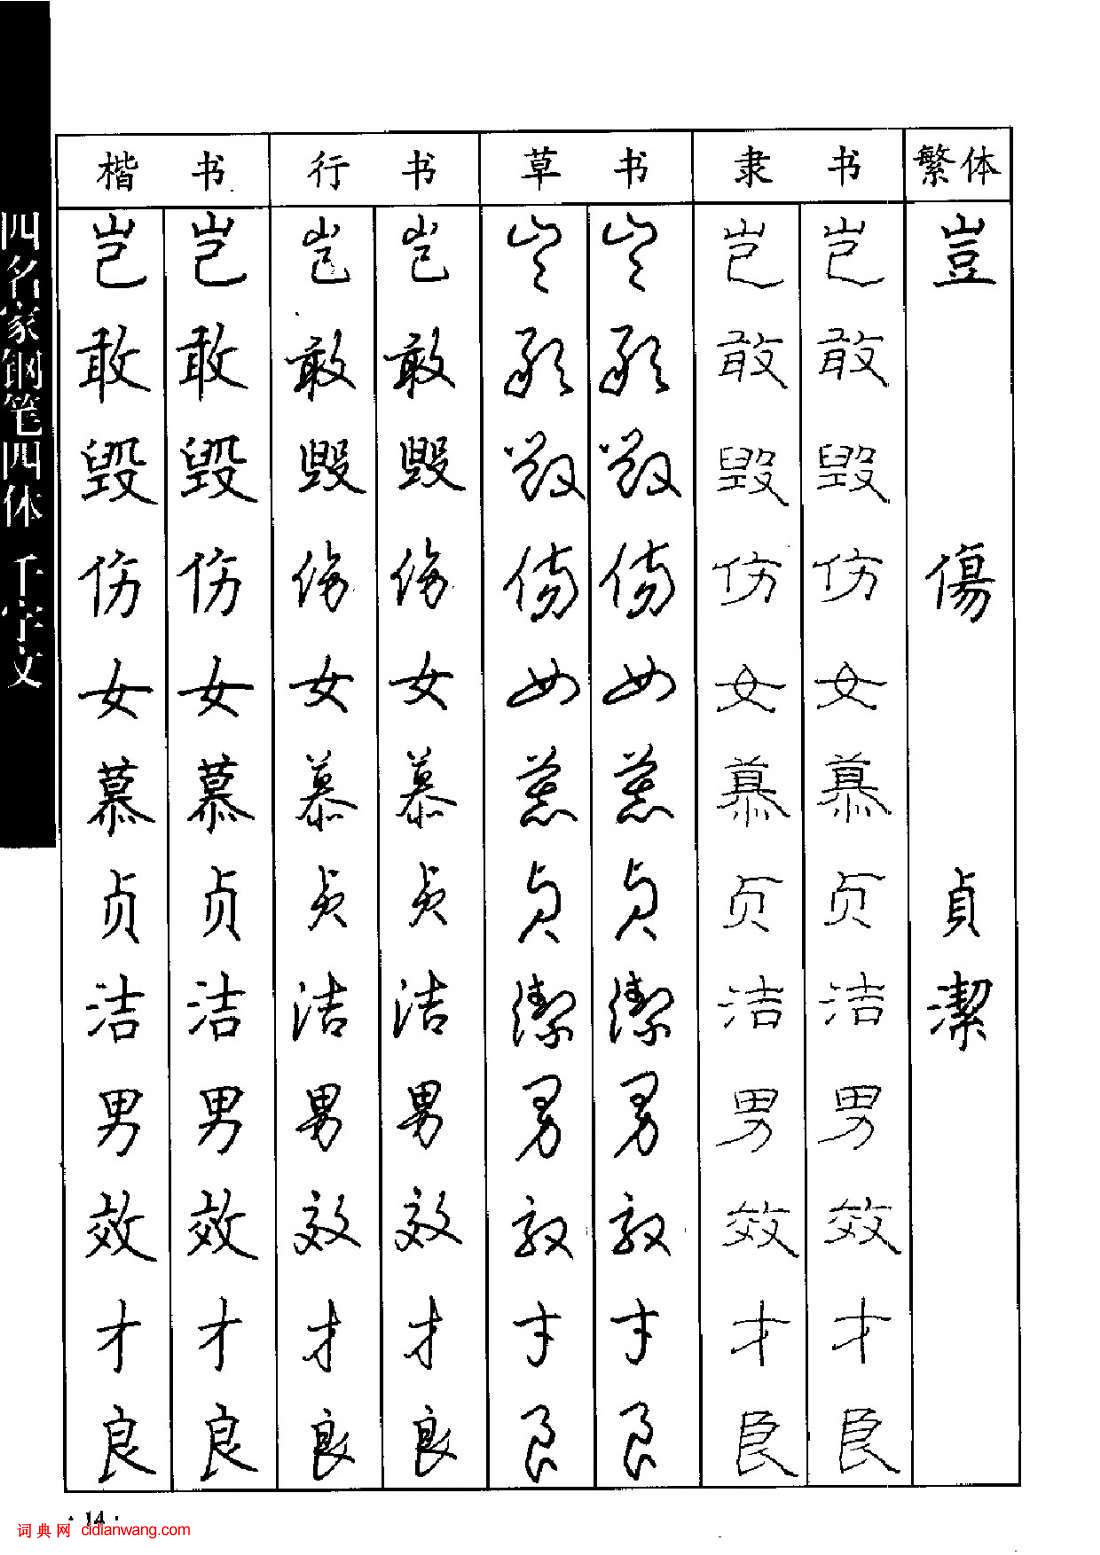 四名家钢笔四体 千字文
楷书 行书 草书 隶书 繁体
岂 岂 岂 岂 岂 岂 岂 岂 豈
敢 敢 敢 敢 敢 敢 敢 敢
毁 毁 毁 毁 毁 毁 毁 毁
伤 伤 伤 伤 傷 傷 伤 伤 傷
女 女 女 女 女 女 女 女
慕 慕 慕 慕 慕 慕 慕 慕
贞 贞 贞 贞 贞 贞 贞 贞 貞
洁 洁 洁 洁 潔 潔 洁 洁 潔
男 男 男 男 男 男 男 男
效 效 效 效 效 效 效 效
才 才 才 才 才 才 才 才
良 良 良 良 良 良 良 良
· 14 ·
词典网 cidianwang.com